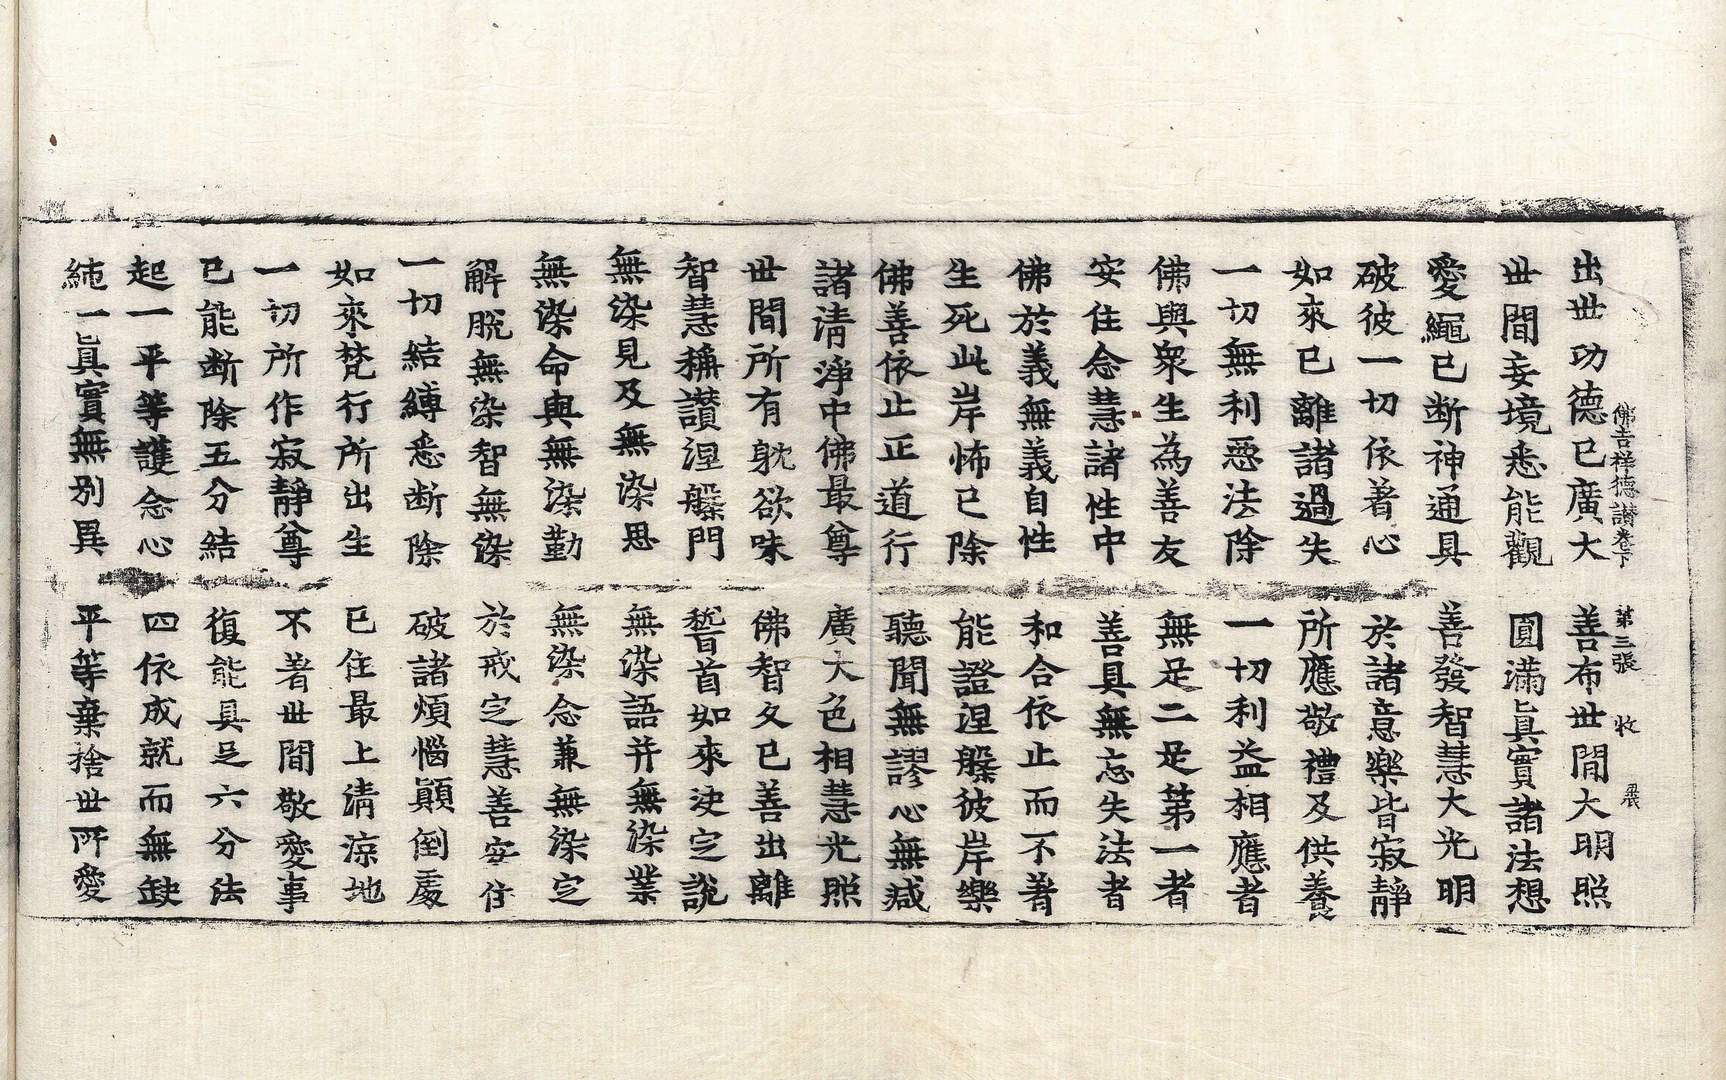 佛吉祥德讃卷下 第三張 收
出世功德已廣大 善布世間大明照
世間妄境悉能觀 圓滿眞實諸法想
愛繩已断神通具 善發智慧大光明
破彼一切依著心 於諸意樂皆寂靜
如來已離諸過失 所應敬禮及供養
一切無利惡法除 一切利益相應者
佛與衆生為善友 無足二足第一者
安住念慧諸性中 善具無忘失法者
佛於義無義自性 和合依止而不著
生死此岸怖已除 能證涅槃彼岸樂
佛善依止正道行 聽聞無謬心無減
諸清淨中佛最尊 廣大色相慧光照
世間所有躭欲味 佛智久已善出離
智慧稱讃涅槃門 諬首如來決定說
無染見及無染思 無染語并無染業
無染命與無染勤 無染念兼無染定
解脫無染智無染 於戒定慧善安住
一切結縛悉断除 破諸煩惱顚倒處
如來梵行所出生 已住最上清涼地
一切所作寂靜尊 不著世間敬愛事
已能断除五分結 復能具足六分法
起一平等護念心 四依成就而無缺
純一眞實無別異 平等棄捨世所愛